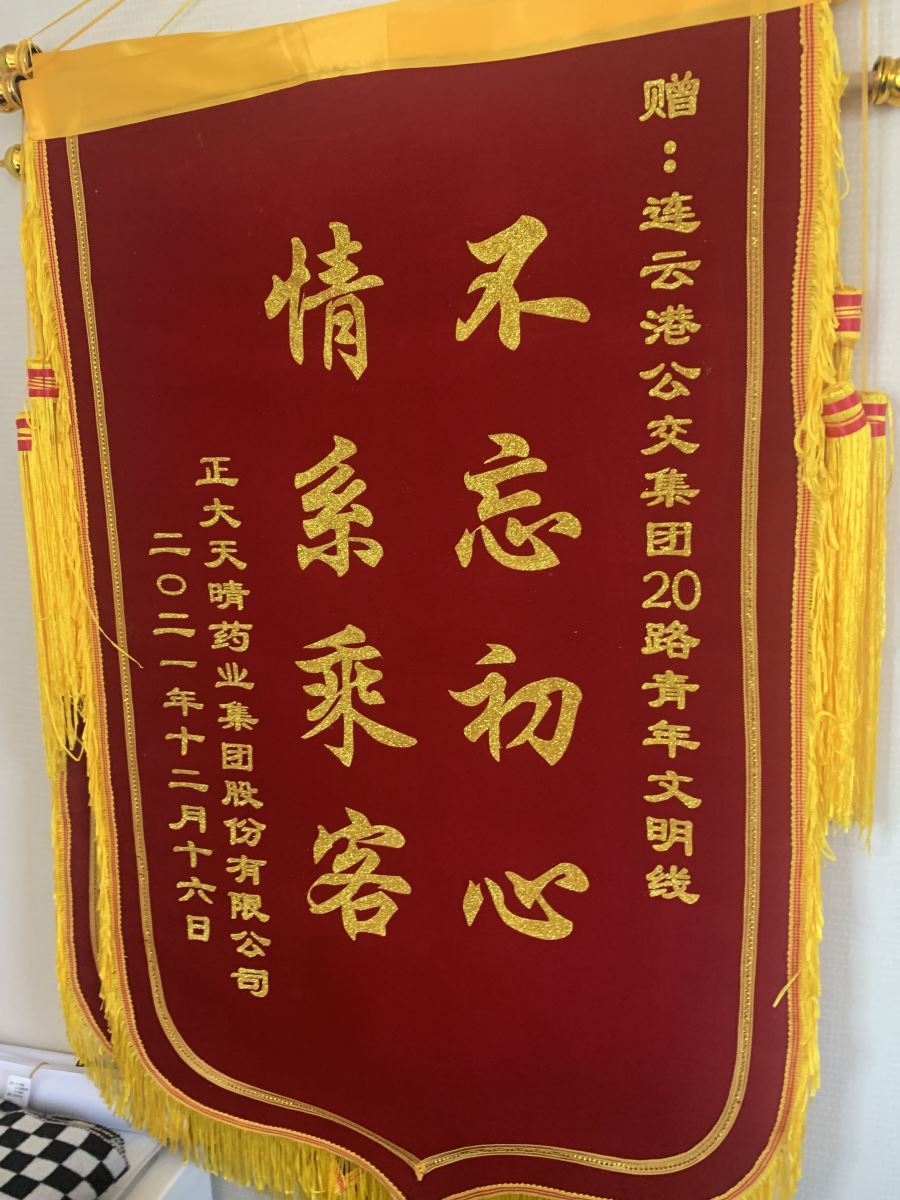 赠：连云港公交集团20路青年文明线
不忘初心
情系乘客
正大天晴药业集团股份有限公司
二〇二一年十二月十六日